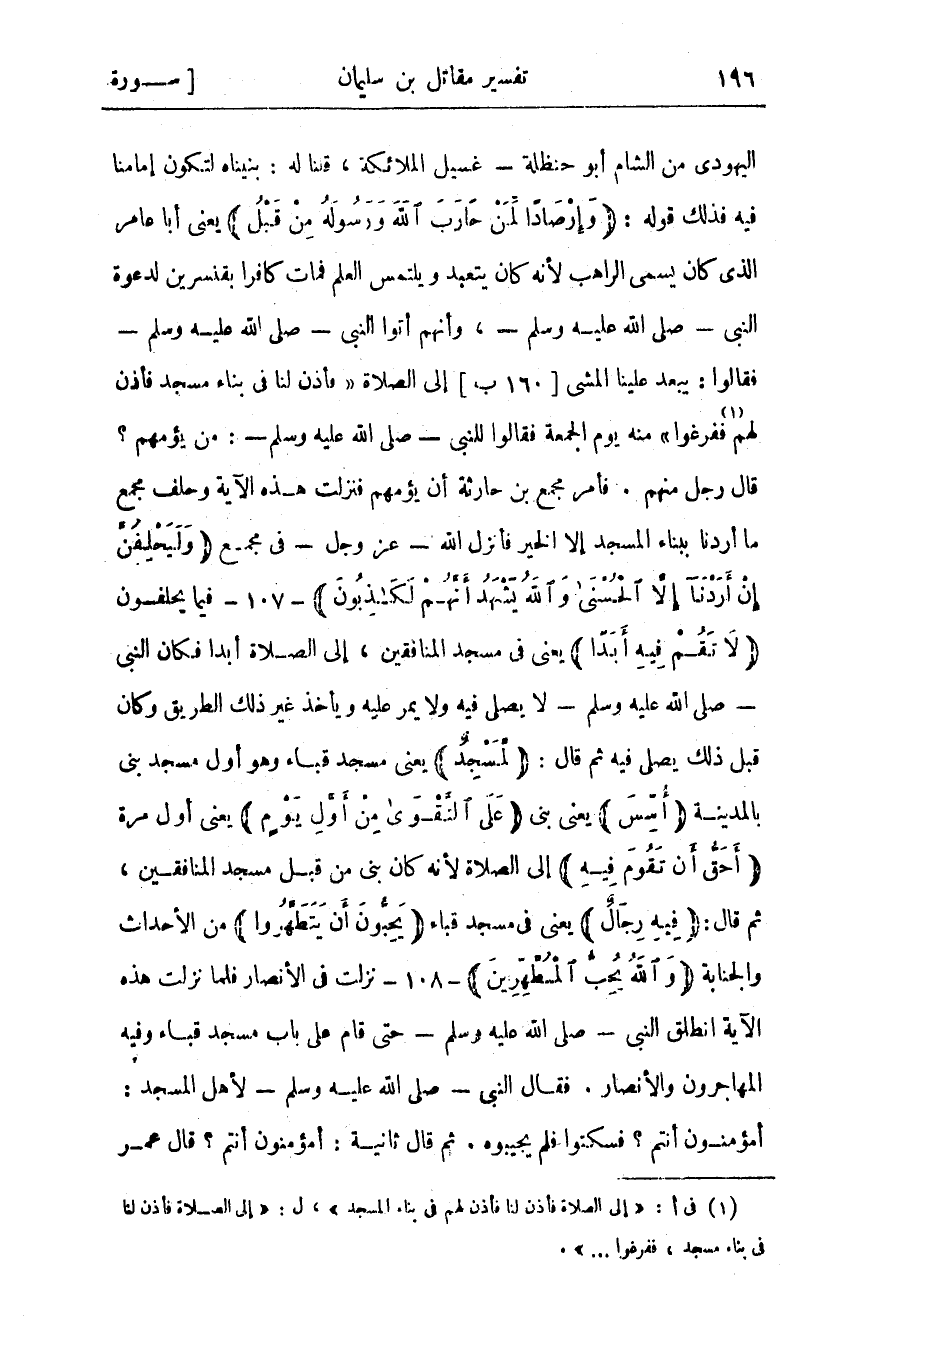 ١٩٦ تفسير مقاتل بن سليمان [ سـورة
اليهودى من الشام أبو حنظلة — غسيل الملائكة ، قلنا له : بنيناه لتكون إمامنا
فيه فذلك قوله : ﴿ وَإِرْصَادًا لِّمَنْ حَارَبَ ٱللَّهَ وَرَسُولَهُ مِنْ قَبْلُ ﴾ يعنى أبا عامر
الذى كان يسمى الراهب لأنه كان يتعبد ويلتمس العلم فمات كافرا بقنسرين لدعوة
النبى — صلى الله عليه وسلم — ، وأنهم أتوا النبى — صلى الله عليه وسلم —
فقالوا : يبعد علينا المشى [ ١٦٠ ب ] إلى الصلاة « فأذن لنا فى بناء مسجد فأذن
لهم ففرغوا»(١) منه يوم الجمعة فقالوا للنبى — صلى الله عليه وسلم— : من يؤمهم ؟
قال رجل منهم . فأمر مجمع بن حارثة أن يؤمهم فنزلت هـذه الآية وحلف مجمع
ما أردنا ببناء المسجد إلا الخير فأنزل الله — عز وجل — فى مجمـع ﴿ وَلَيَحْلِفُنَّ
إِنْ أَرَدْنَآ إِلَّا ٱلْحُسْنَىٰ وَٱللَّهُ يَشْهَدُ أَنَّهُـمْ لَكَـٰذِبُونَ ﴾ - ١٠٧ - فيما يحلفـون
﴿ لَا تَقُـمْ فِيهِ أَبَدًا ﴾ يعنى فى مسجد المنافقين ، إلى الصـلاة أبدا فكان النبى
— صلى الله عليه وسلم — لا يصلى فيه ولا يمر عليه ويأخذ غير ذلك الطريق وكان
قبل ذلك يصلى فيه ثم قال : ﴿ لَّمَسْجِدٌ ﴾ يعنى مسجد قبـاء وهو أول مسجد بنى
بالمدينـة ﴿ أُسِّسَ ﴾ يعنى بنى ﴿ عَلَى ٱلتَّقْـوَىٰ مِنْ أَوَّلِ يَوْمٍ ﴾ يعنى أول مرة
﴿ أَحَقُّ أَن تَقُومَ فِيـهِ ﴾ إلى الصلاة لأنه كان بنى من قبـل مسجد المنافقـين ،
ثم قال: ﴿ فِيهِ رِجَالٌ ﴾ يعنى فى مسجد قباء ﴿ يُحِبُّونَ أَن يَتَطَهَّرُوا ﴾ من الأحداث
والجنابة ﴿ وَٱللَّهُ يُحِبُّ ٱلْمُطَّهِّرِينَ ﴾ - ١٠٨ - نزلت فى الأنصار فلما نزلت هذه
الآية انطلق النبى — صلى الله عليه وسلم — حتى قام على باب مسجد قبـاء وفيه
المهاجرون والأنصار . فقـال النبى — صلى الله عليـه وسلم — لأهل المسجد :
أمؤمنـون أنتم ؟ فسكتوا فلم يجيبوه . ثم قال ثانيـة : أمؤمنون أنتم ؟ قال عمـر
(١) فى أ : « إلى الصلاة فأذن لنا فأذن لهم فى بناء المسجد » ، ل : « إلى الصـلاة فأذن لنا
فى بناء مسجد ، ففرغوا ... » .